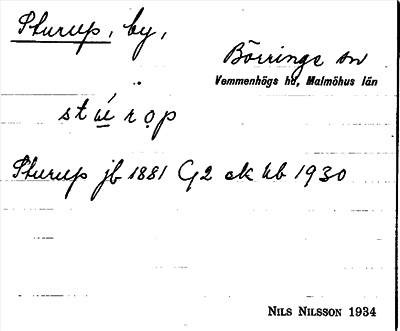 Sturup, by,
Börringe sn
Vemmenhögs hd, Malmöhus län
stú̈rọp
Sturup jb 1881 G2 ek kb 1930
NILS NILSSON 1934